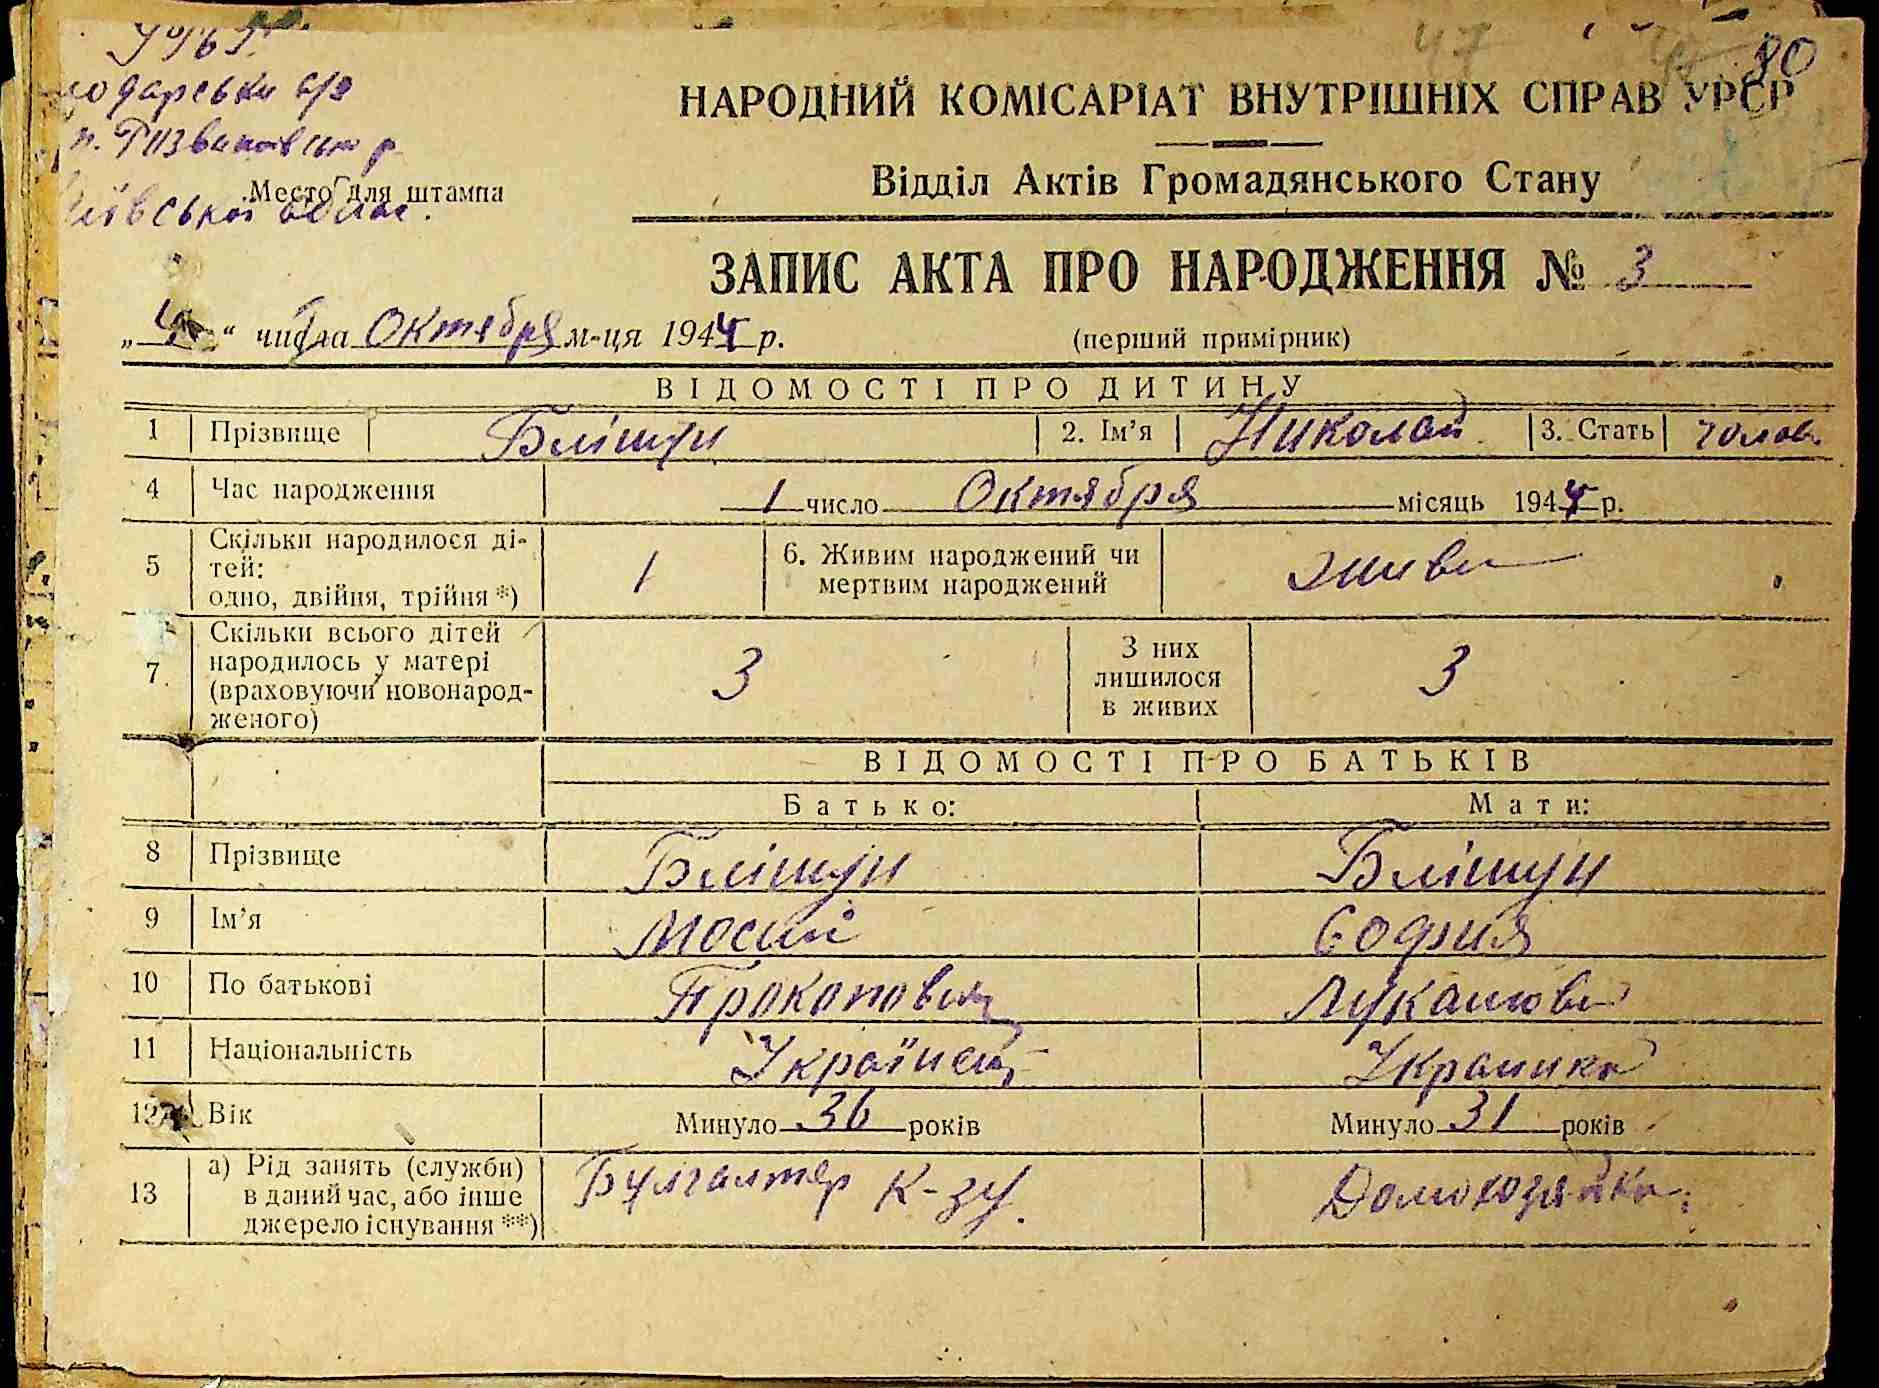 УРСР
одарська с/р
п. Розваживськ р
Місто для штампа
Київської област.
47
80
НАРОДНИЙ КОМІСАРІАТ ВНУТРІШНІХ СПРАВ УРСР
Відділ Актів Громадянського Стану
ЗАПИС АКТА ПРО НАРОДЖЕННЯ № 3
„4“ числа Октября м-ця 1944 р. (перший примірник)
ВІДОМОСТІ ПРО ДИТИНУ
1 Прізвище Блішун 2. Ім'я Николай 3. Стать чолов.
4 Час народження 1 число Октября місяць 1944 р.
5 Скільки народилося ді-
тей:
одно, двійня, трійня *) 1
6. Живим народжений чи
мертвим народжений живи
7 Скільки всього дітей
народилось у матері
(враховуючи новонарод-
женого) 3
З них
лишилося
в живих 3
ВІДОМОСТІ ПРО БАТЬКІВ
Батько: Мати:
8 Прізвище Блішун Блішун
9 Ім'я Мосий София
10 По батькові Прокопович Лукашова
11 Національність Українец Украинка
12 Вік Минуло 36 років Минуло 31 років
13 а) Рід занять (служби)
в даний час, або інше
джерело існування **) Булгалтер К-зу. Домохозяйка.